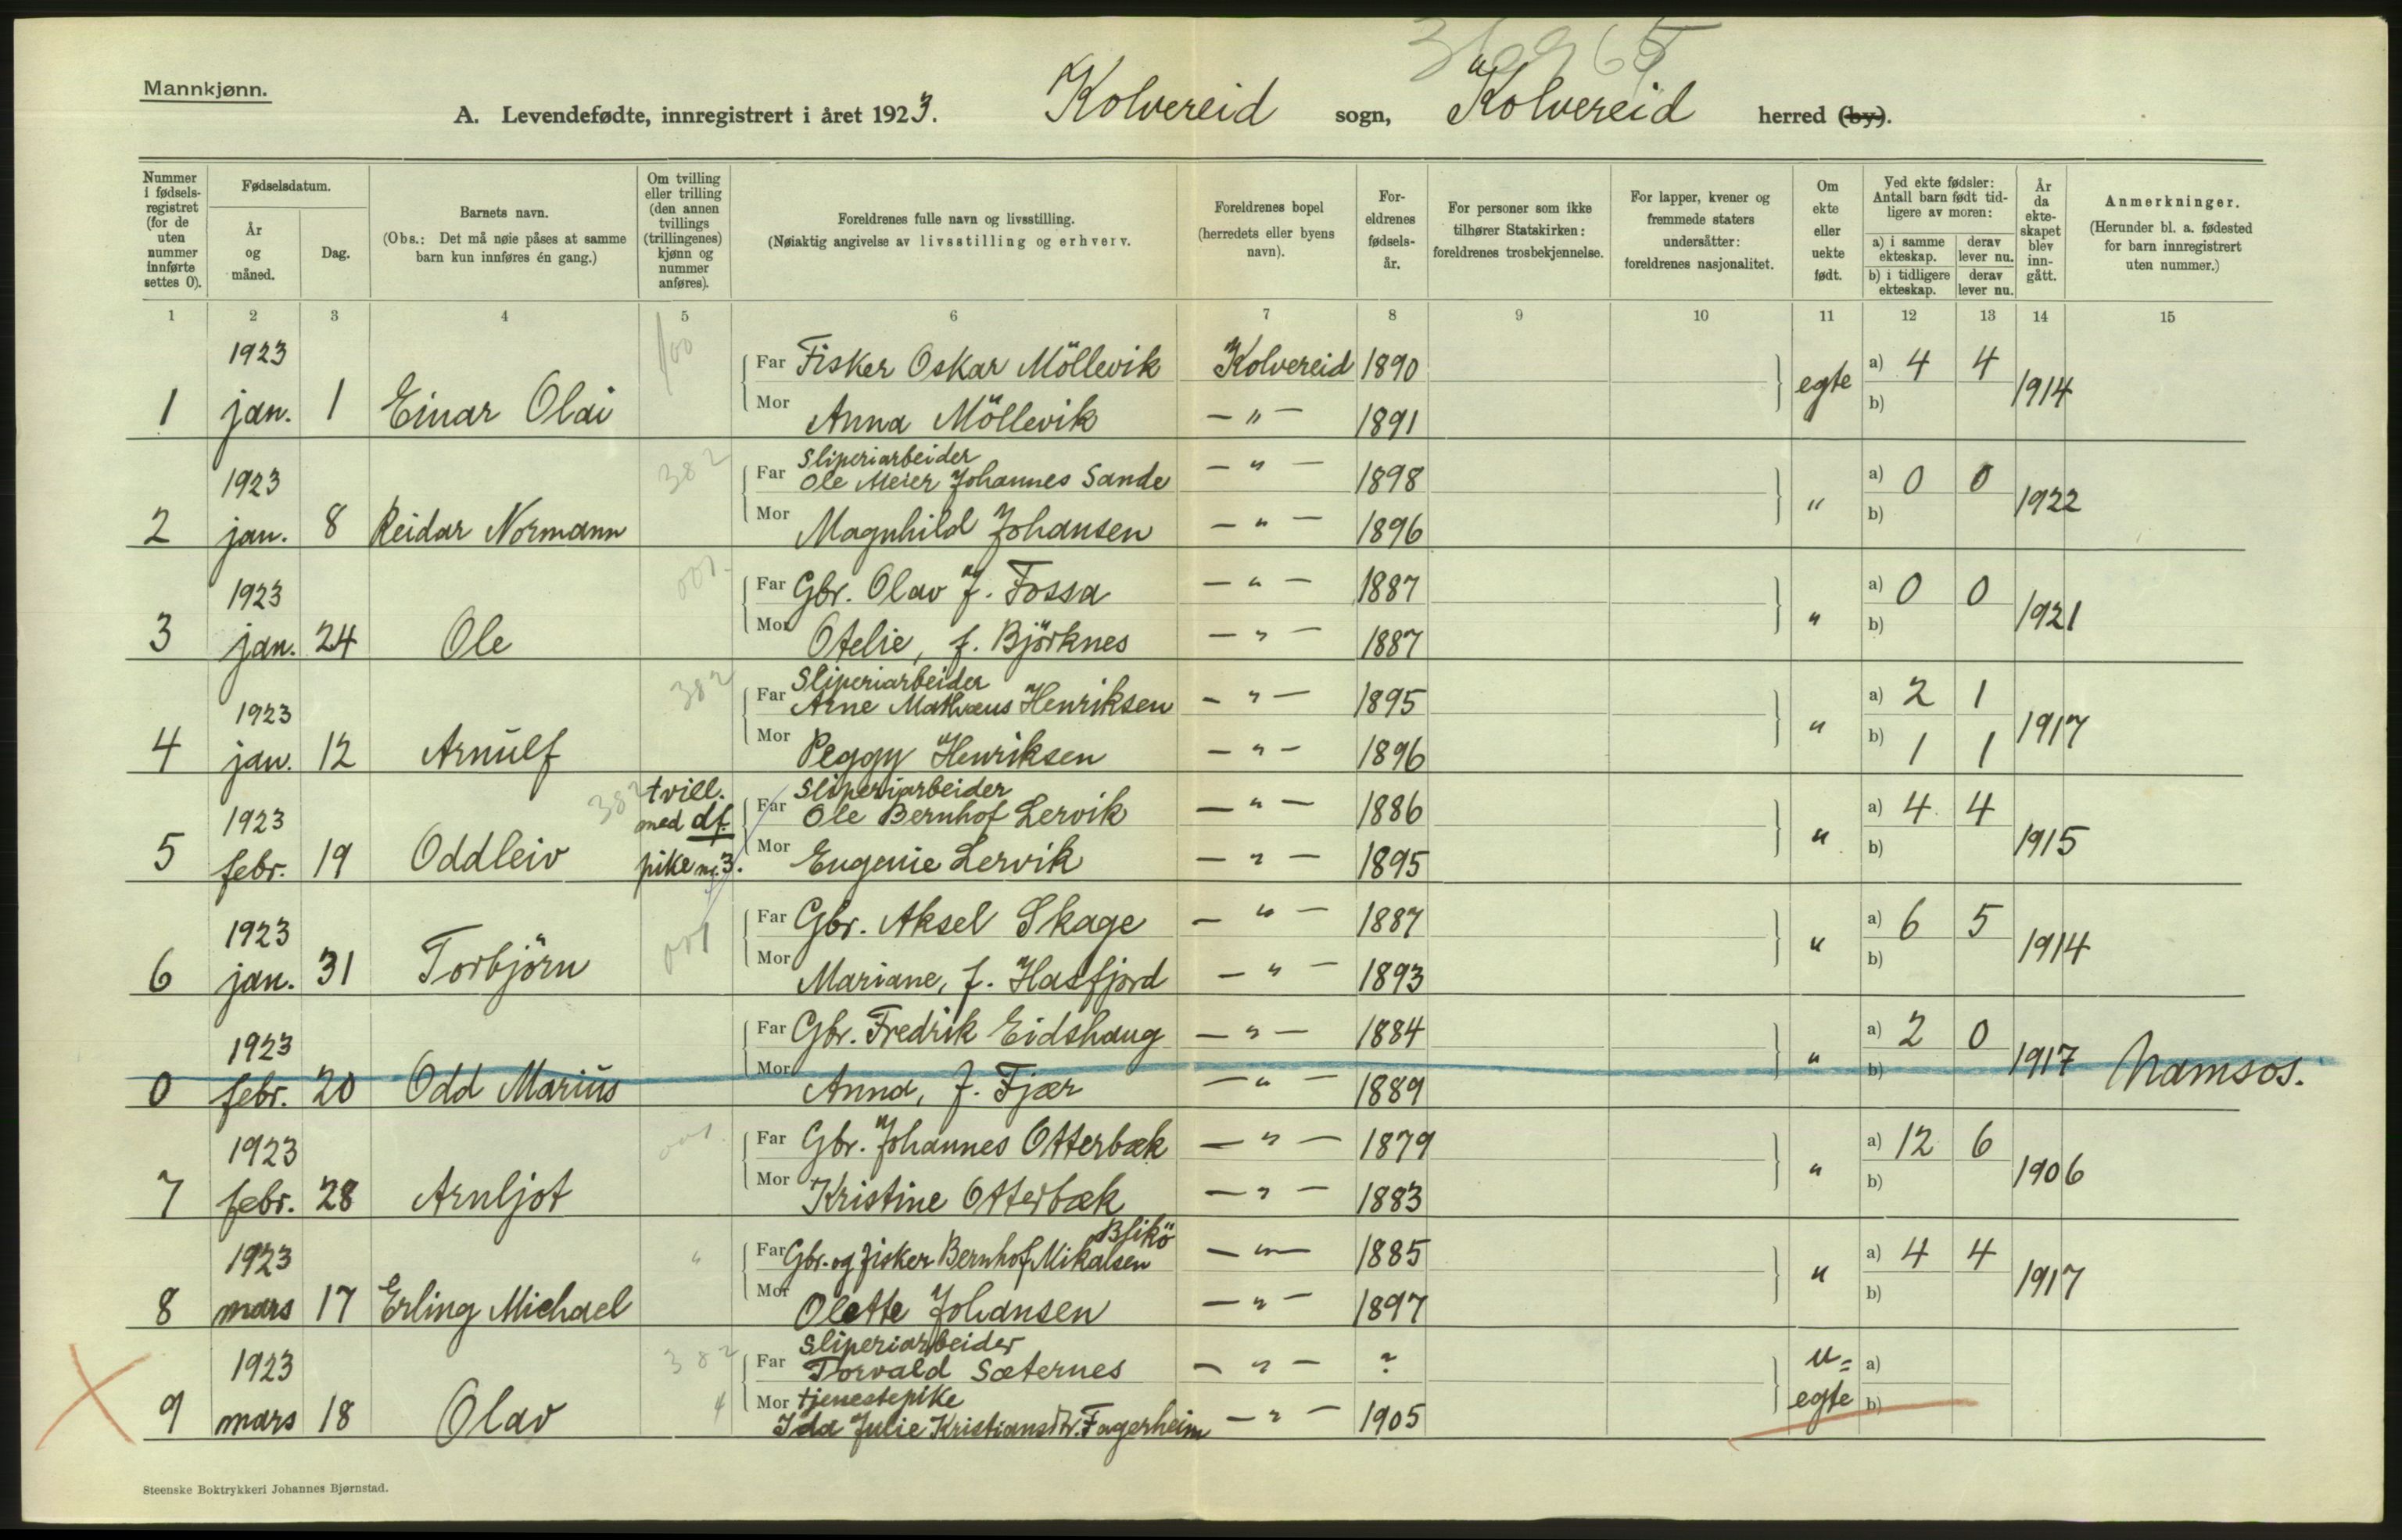 Mannkjønn.
A. Levendefødte, innregistrert i året 1923. Kolvereid sogn, Kolvereid herred (by).
Nummer i fødselsregistret (for de uten nummer innførte settes 0).
Fødselsdatum.
År og måned.
Dag.
Barnets navn.
(Obs.: Det må nøie påses at samme barn kun innføres én gang.)
Om tvilling eller trilling (den annen tvillings (trillingenes) kjønn og nummer anføres).
Foreldrenes fulle navn og livsstilling.
(Nøiaktig angivelse av livsstilling og erhverv.
Foreldrenes bopel (herredets eller byens navn).
Foreldrenes fødselsår.
For personer som ikke tilhører Statskirken: foreldrenes trosbekjennelse.
For lapper, kvener og fremmede staters undersåtter: foreldrenes nasjonalitet.
Om ekte eller uekte født.
Ved ekte fødsler: Antall barn født tidligere av moren:
a) i samme ekteskap. derav lever nu.
b) i tidligere ekteskap. derav lever nu.
År da ekteskapet blev inngått.
Anmerkninger.
(Herunder bl. a. fødested for barn innregistrert uten nummer.)
1 2 3 4 5 6 7 8 9 10 11 12 13 14 15
1923 100 Far Fisker Oskar Möllevik Kolvereid 1890 egte a) 4 4 1914
1 jan. 1 Einar Olai Mor Anna Möllevik — " — 1891 b)
1923 382 Sliperiarbeider
Far Ole Meier Johannes Sande — " — 1898 " a) 0 0 1922
2 jan. 8 Reidar Normann Mor Magnhild Johansen — " — 1896 b)
1923 001. Far Gbr. Olav J. Fossa — " — 1887 " a) 0 0 1921
3 jan. 24 Ole Mor Otelie, f. Björknes — " — 1887 b)
1923 382 Sliperiarbeider
Far Arne Mathæus Henriksen — " — 1895 " a) 2 1 1917
4 jan. 12 Arnulf Mor Peggy Henriksen — " — 1896 b) 1 1
1923 382 tvill. Sliperiarbeider
med df. Far Ole Bernhof Lervik — " — 1886 " a) 4 4 1915
5 febr. 19 Oddleiv pike nr. 3. Mor Eugenie Lervik — " — 1895 b)
1923 001 Far Gbr. Aksel Skage — " — 1887 " a) 6 5 1914
6 jan. 31 Torbjörn Mor Mariane, f. Hasfjord — " — 1893 b)
1923 Far Gbr. Fredrik Eidshaug — " — 1884 " a) 2 0 1917 Namsos.
0 febr. 20 Odd Marius Mor Anna, f. Fjær — " — 1889 b)
1923 001. Far Gbr. Johannes Otterbæk — " — 1879 " a) 12 6 1906
7 febr. 28 Arnljot Mor Kristine Otterbæk — " — 1883 b)
1923 " Far Gbr. og fisker Bernhof Mikalsen Blikö — " — 1885 " a) 4 4 1917
8 mars 17 Erling Michael Mor Olette Johansen — " — 1897 b)
1923 382 Sliperiarbeider
Far Torvald Sæternes — " — ? u= a)
4 Mor tjenestepike egte b)
9 mars 18 Olav Ida Julie Kristiansdtr. Fagerheim — " — 1905
Steenske Boktrykkeri Johannes Bjørnstad.